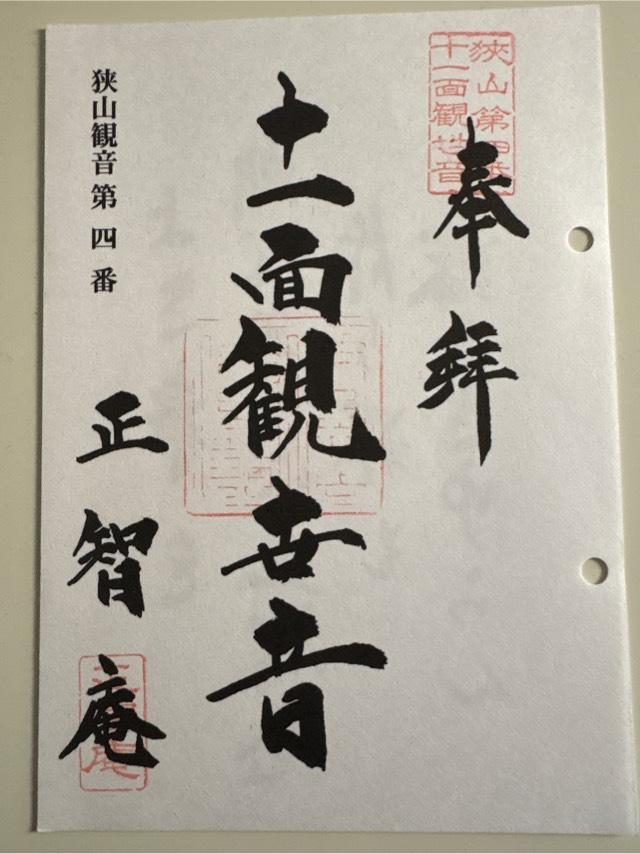 狭山第四番
十一面観世音
奉拝
十一面観世音
狭山観音第四番
正智庵
正智庵